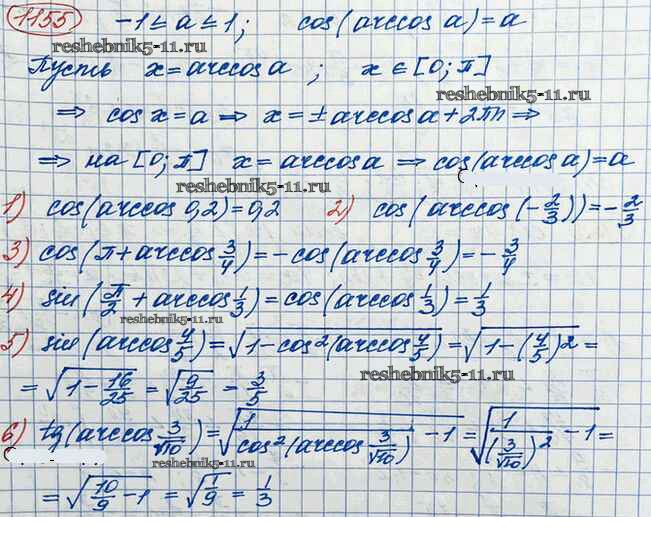 1155 -1 ≤ a ≤ 1; cos(arccos a) = a
reshebnik5-11.ru
Пусть x = arccos a ; x ∈ [0; π]
reshebnik5-11.ru
⇒ cos x = a ⇒ x = ± arccos a + 2πn ⇒
⇒ на [0; π] x = arccos a ⇒ cos(arccos a) = a
reshebnik5-11.ru
1) cos(arccos 0,2) = 0,2 2) cos(arccos(-2/3)) = -2/3
3) cos(π + arccos 3/4) = -cos(arccos 3/4) = -3/4
4) sin(π/2 + arccos 1/3) = cos(arccos 1/3) = 1/3
reshebnik5-11.ru
5) sin(arccos 4/5) = √(1 - cos²(arccos 4/5)) = √(1 - (4/5)²) =
= √(1 - 16/25) = √(9/25) = 3/5
reshebnik5-11.ru
6) tg(arccos 3/√10) = √(1/cos²(arccos 3/√10) - 1) = √(1/(3/√10)² - 1) =
reshebnik5-11.ru
= √(10/9 - 1) = √(1/9) = 1/3